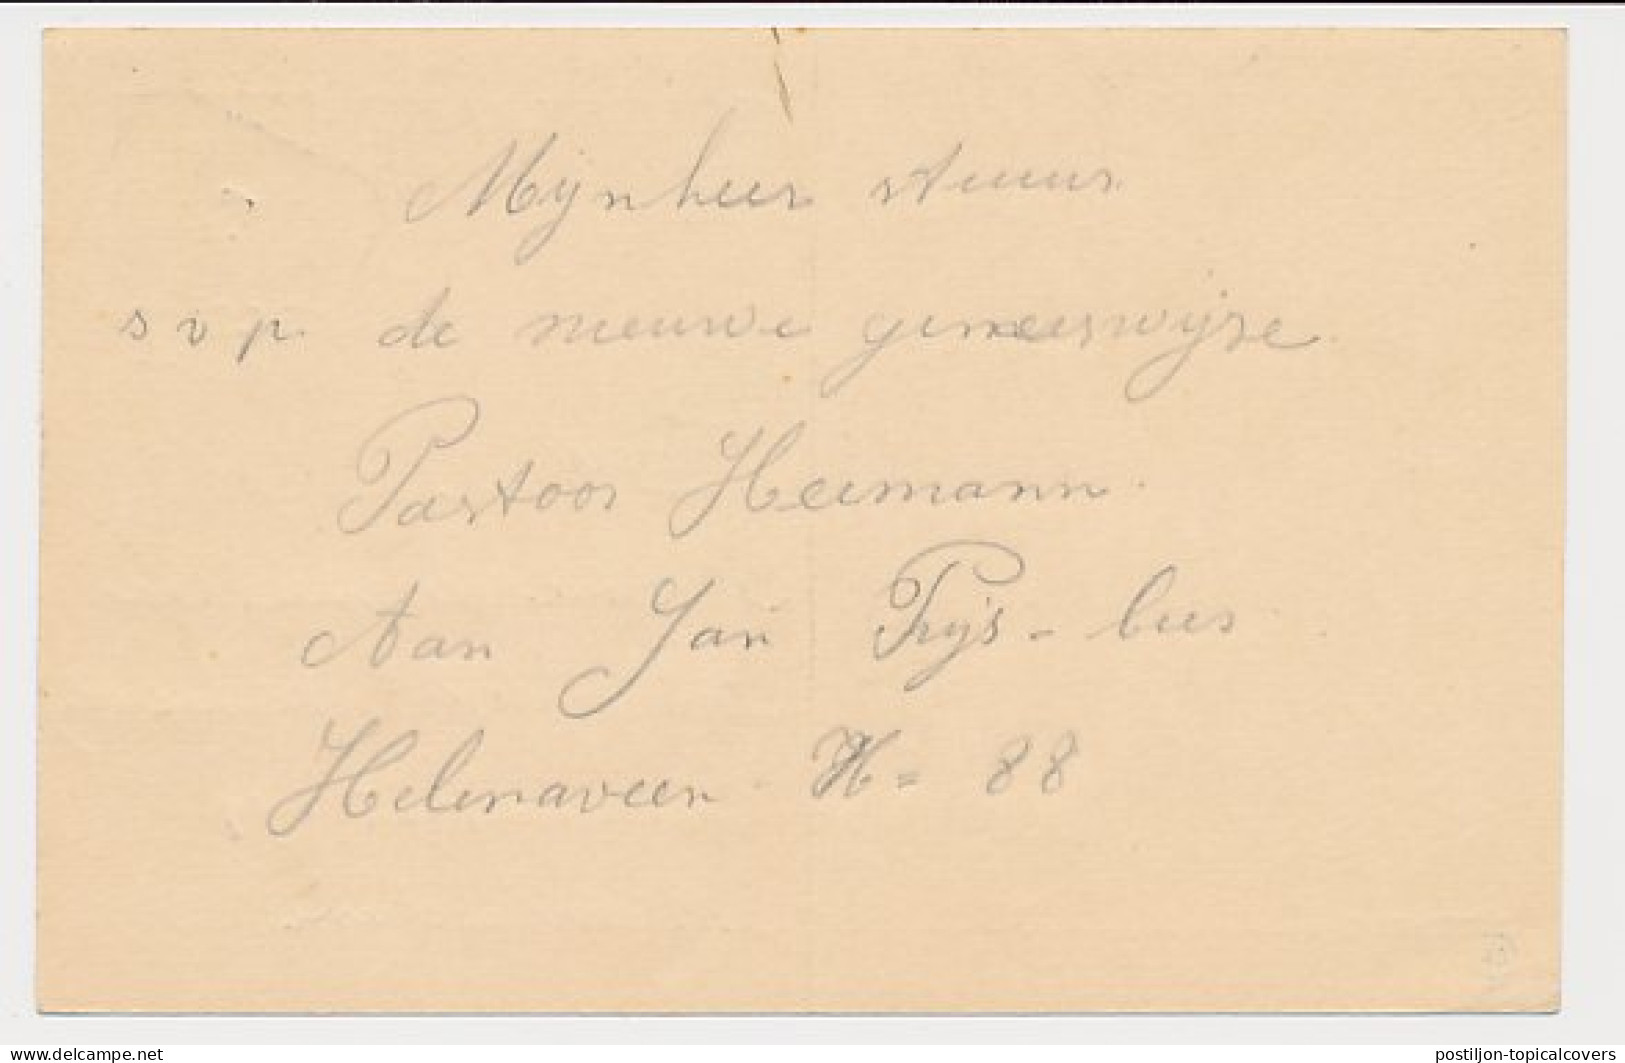 Mijnheer stuur
s v p. de nieuwe geneeswijze.
Pastoor Heumann.
Aan Jan Thijs-
Helenaveen H= 88
delcampe.net
postiljon-topicalcovers